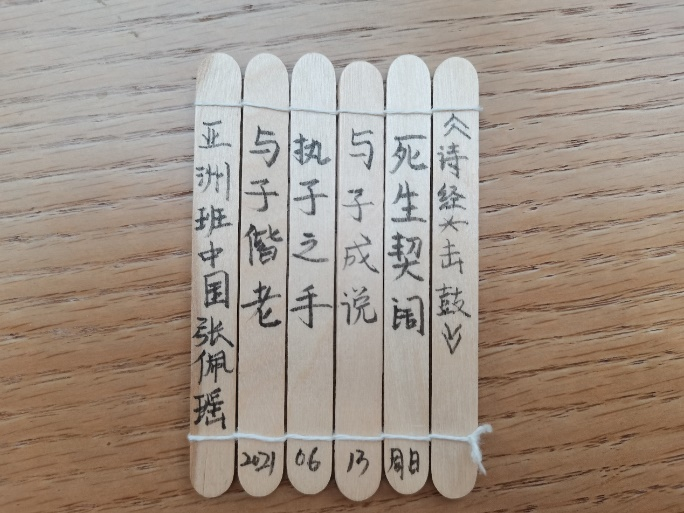 《诗经·击鼓》
死生契阔
与子成说
执子之手
与子偕老
亚洲班中国张佩瑶
2021 06 13 周日